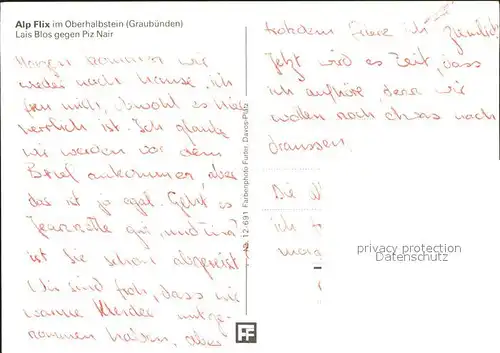 Alp Flix im Oberhalbstein (Graubünden)
Lais Blos gegen Piz Nair
Morgen kommen wir
wieder nach hause, ich
freu mich, obwohl es hier
herrlich ist. Ich glaube
wir werden vor dem
Brief ankommen, aber
das ist ja egal. Geht es
Jeannette gut, und Tina?
ist Sie schon abgereist.
Wir sind froh, dass wir
warme Kleider mitge-
nommen haben, aber
12.691 Farbenphoto Furter, Davos-Platz
trotzdem friere ich ziemlich.
Jetzt wird es Zeit, dass
ich aufhöre, denn wir
wollen noch etwas nach
draussen.
Die
ich
morg
privacy protection
Datenschutz
FF